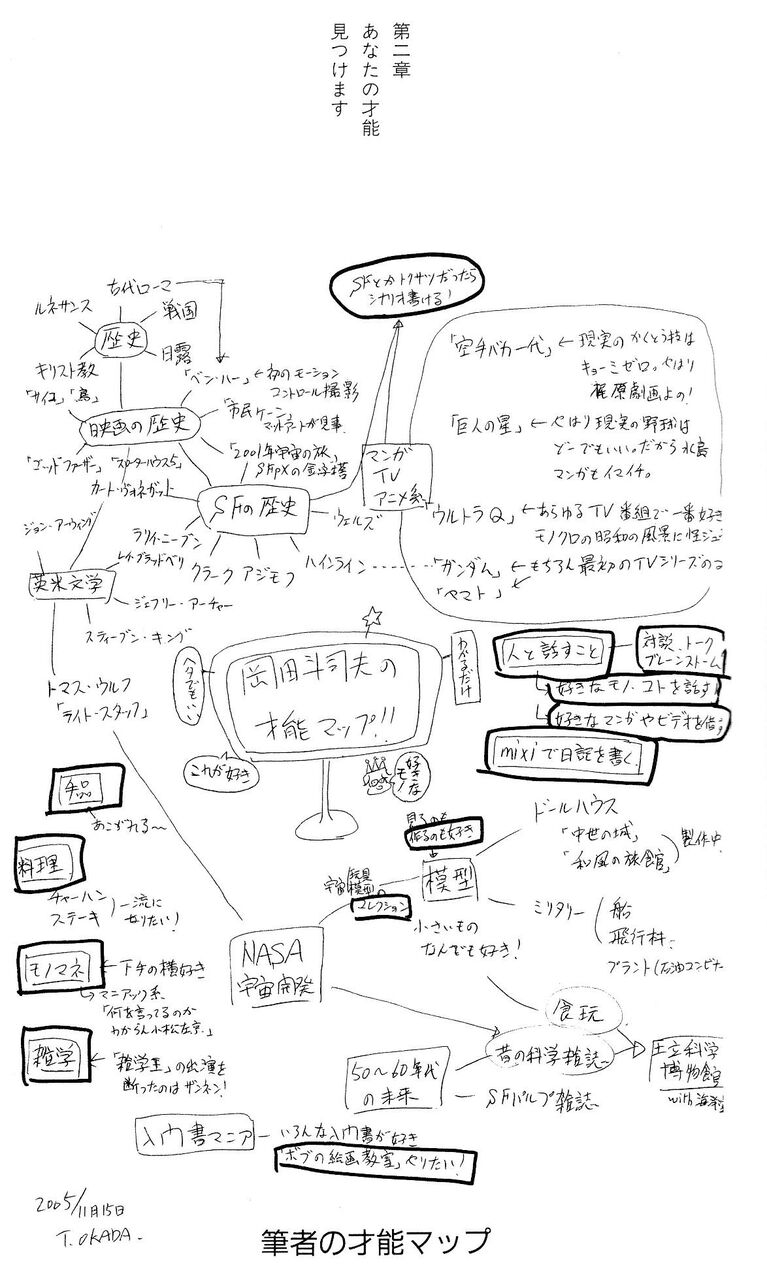 第二章
あなたの才能
見つけます
SFとかトクサツだったら
シナリオ書ける!
古代ローマ
ルネサンス
戦国
歴史
日露
キリスト教
「サイコ」「鳥」
映画の歴史
「ベン・ハー」←初のモーション
コントロール撮影
「市民ケーン」
マットアートが見事
「2001年宇宙の旅」
SFφXの金字塔
「ゴッドファーザー」
「スローターハウス5」
カート・ヴォネガット
SFの歴史
ウェルズ
ラリイ・ニーブン
レイ・ブラッドベリ
クラーク
アジモフ
ハインライン
ジョン・アーヴィング
英米文学
ジェフリー・アーチャー
スティーブン・キング
トマス・ウルフ
「ライト・スタッフ」
マンガ
TV
アニメ系
「空手バカ一代」←現実のかくとう技は
キョーミゼロ。やはり
梶原劇画よの!
「巨人の星」←やはり現実の野球は
どーでもいい。だから水島
マンガもイマイチ。
「ウルトラQ」←あらゆるTV番組で一番好き
モノクロの昭和の風景に
「ガンダム」←もちろん最初のTVシリーズの
「ヤマト」
岡田斗司夫の
才能マップ!!
ヘタでもいい
わかるだけ
これが好き
好きな
モノ
人と話すこと
対談、トーク
ブレーンストーム
好きなモノ・コトを話す
好きなマンガやビデオを
mixiで日記を書く
手品
あこがれる〜
料理
チャーハン
ステーキ
一流に
なりたい!
モノマネ
←下手の横好き
マニアック系
「何を言ってるのか
わからん小松左京」
雑学
←「雑学王」の出演を
断ったのはザンネン!
見るのも
作るのも好き
模型
宇宙
玩具
模型の
コレクション
小さいもの
なんでも好き!
ドールハウス
「中世の城」
「和風の旅館」
製作中
ミリタリー
船
飛行機
プラント(石油コンビナ
NASA
宇宙開発
食玩
昔の科学雑誌
50〜60年代
の未来
SFパルプ雑誌
国立科学
博物館
入門書マニア
いろんな入門書が好き
「ボブの絵画教室」やりたい!
2005/11月15日
T.OKADA.
筆者の才能マップ